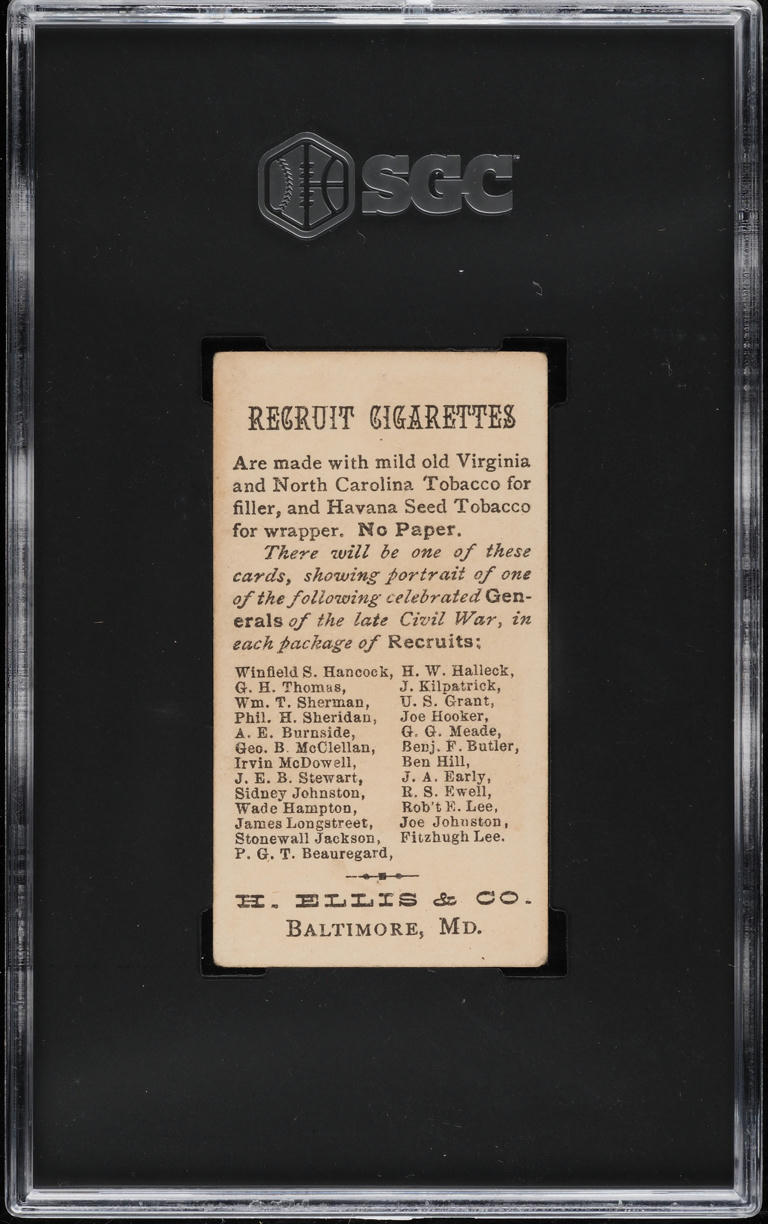 SGC
RECRUIT CIGARETTES
Are made with mild old Virginia
and North Carolina Tobacco for
filler, and Havana Seed Tobacco
for wrapper. No Paper.
There will be one of these
cards, showing portrait of one
of the following celebrated Gen-
erals of the late Civil War, in
each package of Recruits:
Winfield S. Hancock, H. W. Halleck,
G. H. Thomas, J. Kilpatrick,
Wm. T. Sherman, U. S. Grant,
Phil. H. Sheridan, Joe Hooker,
A. E. Burnside, G. G. Meade,
Geo. B. McClellan, Benj. F. Butler,
Irvin McDowell, Ben Hill,
J. E. B. Stewart, J. A. Early,
Sidney Johnston, R. S. Ewell,
Wade Hampton, Rob't E. Lee,
James Longstreet, Joe Johnston,
Stonewall Jackson, Fitzhugh Lee.
P. G. T. Beauregard,
H. ELLIS & CO.
BALTIMORE, MD.